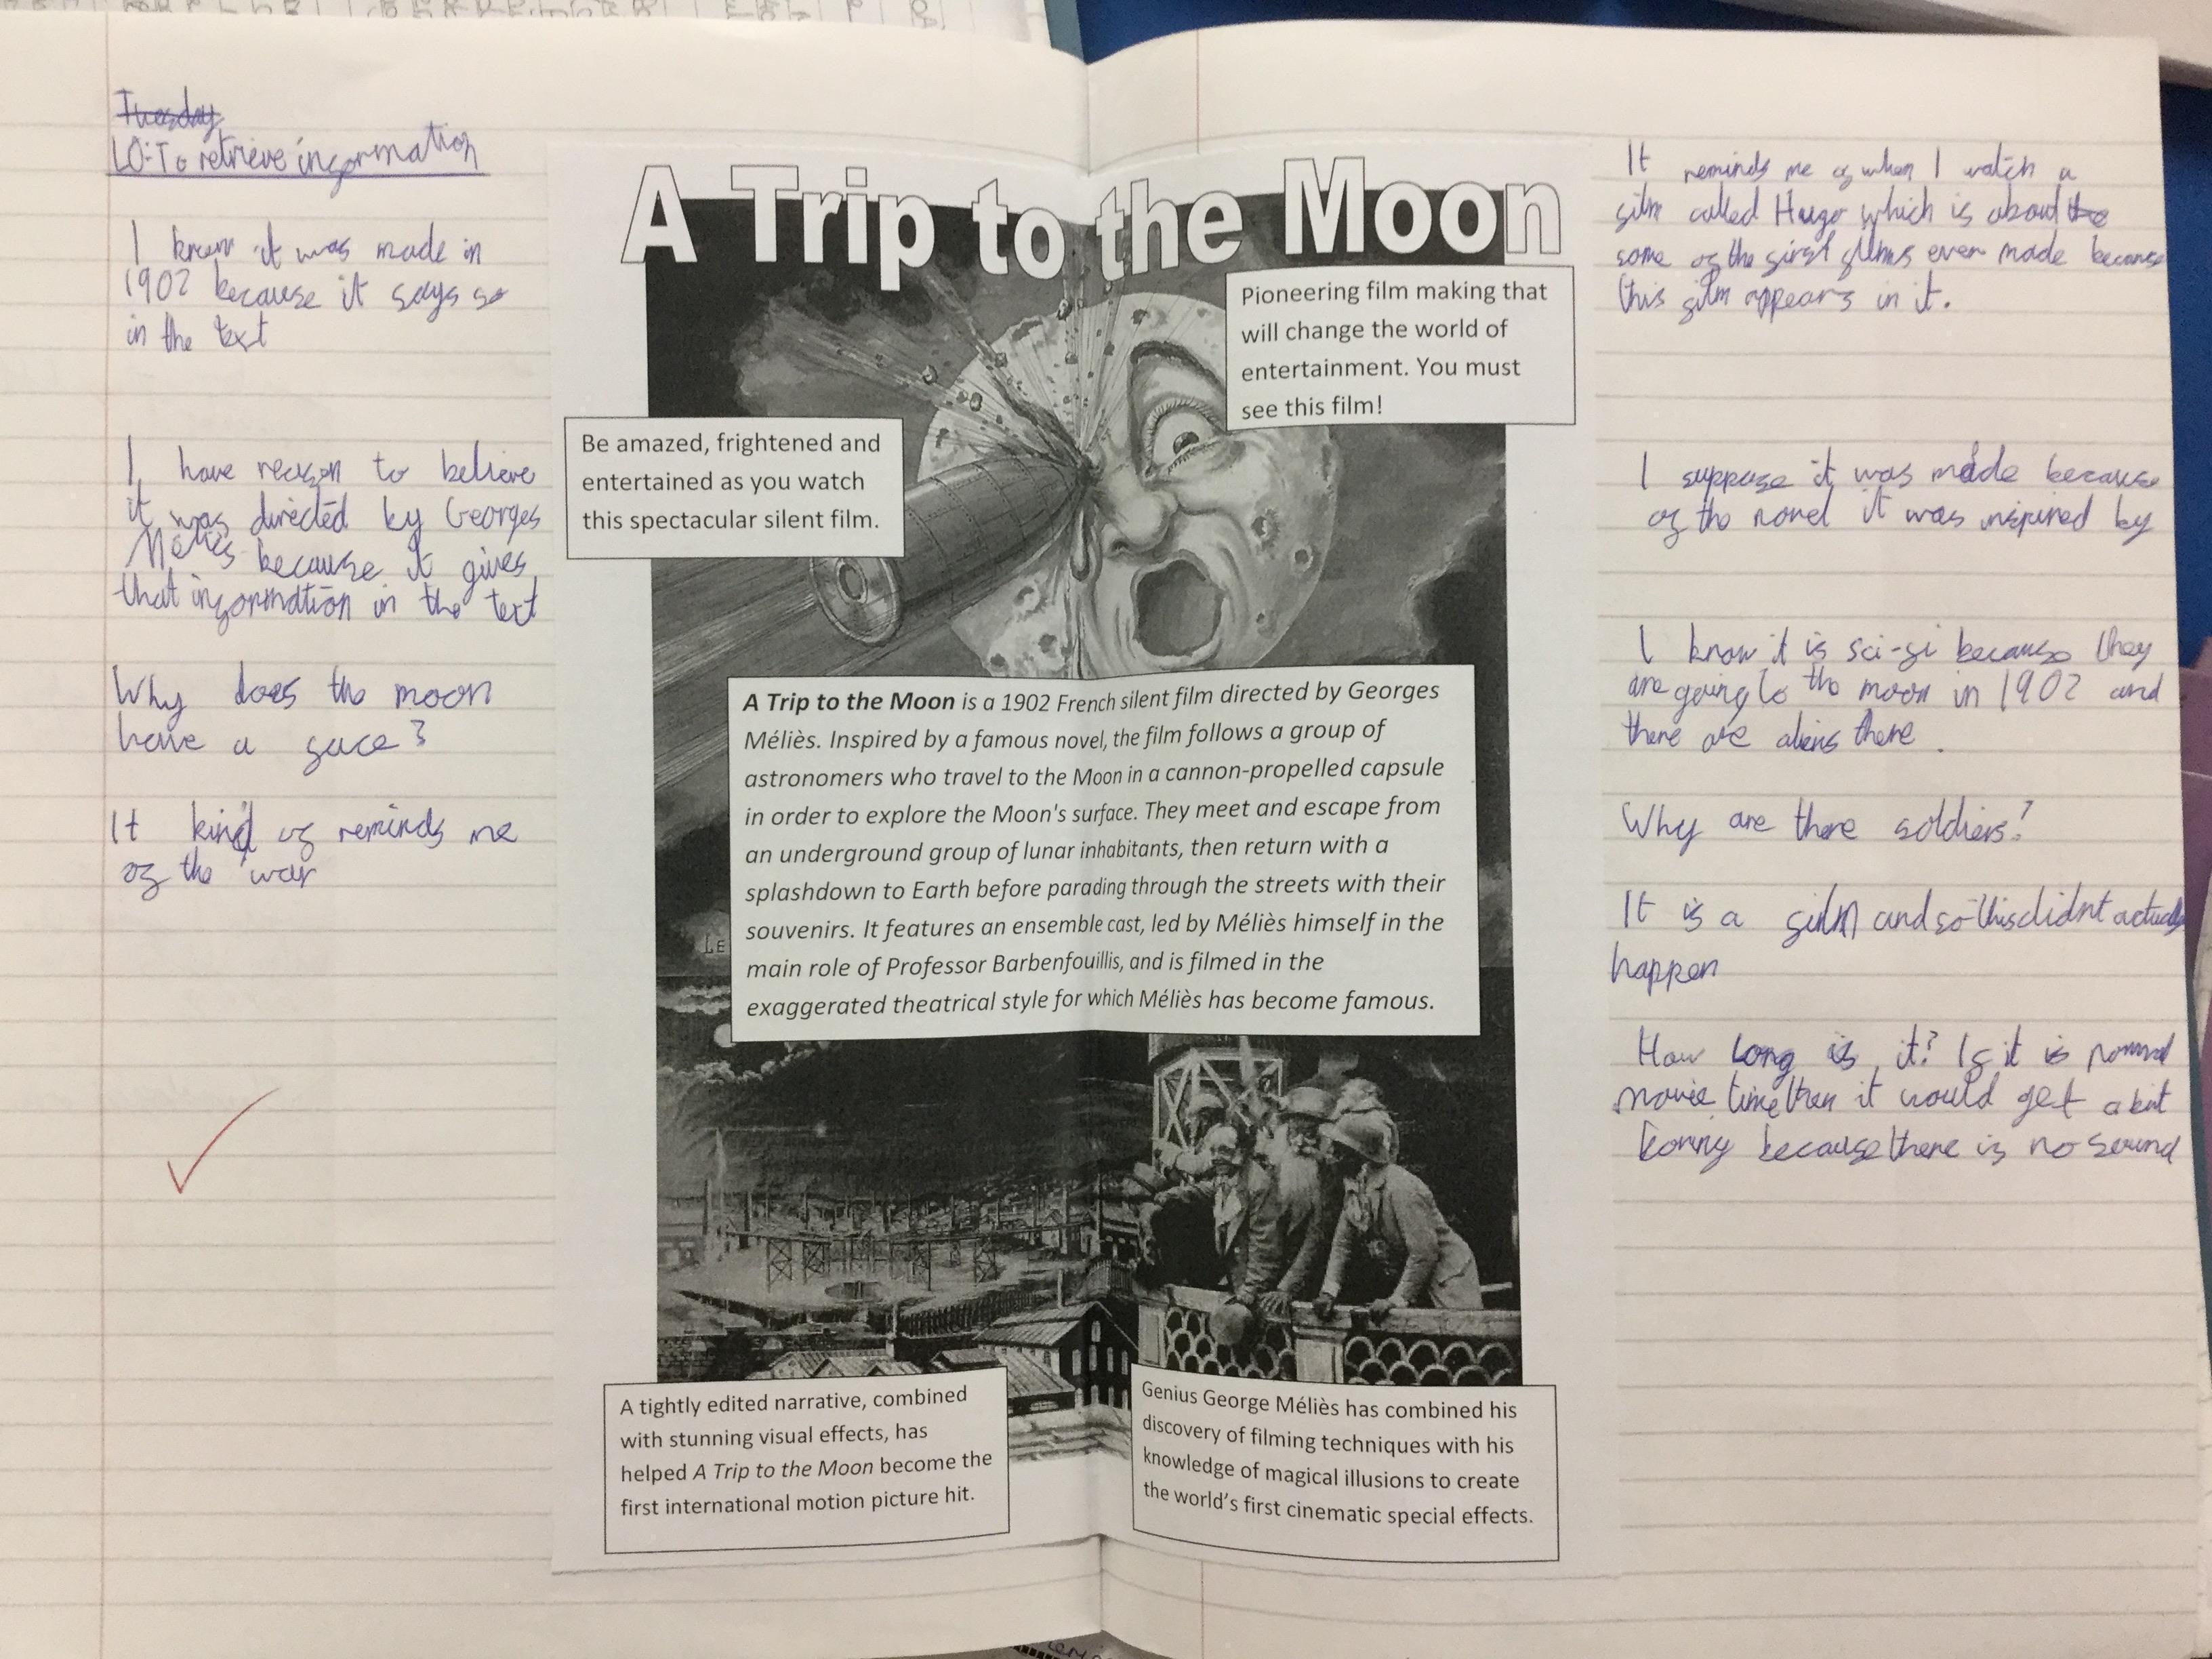 Tuesday
LO: To retrieve information
I know it was made in
1902 because it says so
in the text
I have reason to believe
it was directed by Georges
Méliès because it gives
that information in the text
Why does the moon
have a face?
It kind of reminds me
of the war
A Trip to the Moon
Pioneering film making that
will change the world of
entertainment. You must
see this film!
Be amazed, frightened and
entertained as you watch
this spectacular silent film.
A Trip to the Moon is a 1902 French silent film directed by Georges
Méliès. Inspired by a famous novel, the film follows a group of
astronomers who travel to the Moon in a cannon-propelled capsule
in order to explore the Moon's surface. They meet and escape from
an underground group of lunar inhabitants, then return with a
splashdown to Earth before parading through the streets with their
souvenirs. It features an ensemble cast, led by Méliès himself in the
main role of Professor Barbenfouillis, and is filmed in the
exaggerated theatrical style for which Méliès has become famous.
LE
A tightly edited narrative, combined
with stunning visual effects, has
helped A Trip to the Moon become the
first international motion picture hit.
Genius George Méliès has combined his
discovery of filming techniques with his
knowledge of magical illusions to create
the world's first cinematic special effects.
It reminds me of when I watch a
film called Hugo which is about the
some of the first films ever made because
this film appears in it.
I suppose it was made because
of the novel it was inspired by
I know it is sci-fi because they
are going to the moon in 1902 and
there are aliens there.
Why are there soldiers?
It is a film and so this didnt actually
happen
How long is it? If it is normal
movie time then it would get a bit
boring because there is no sound